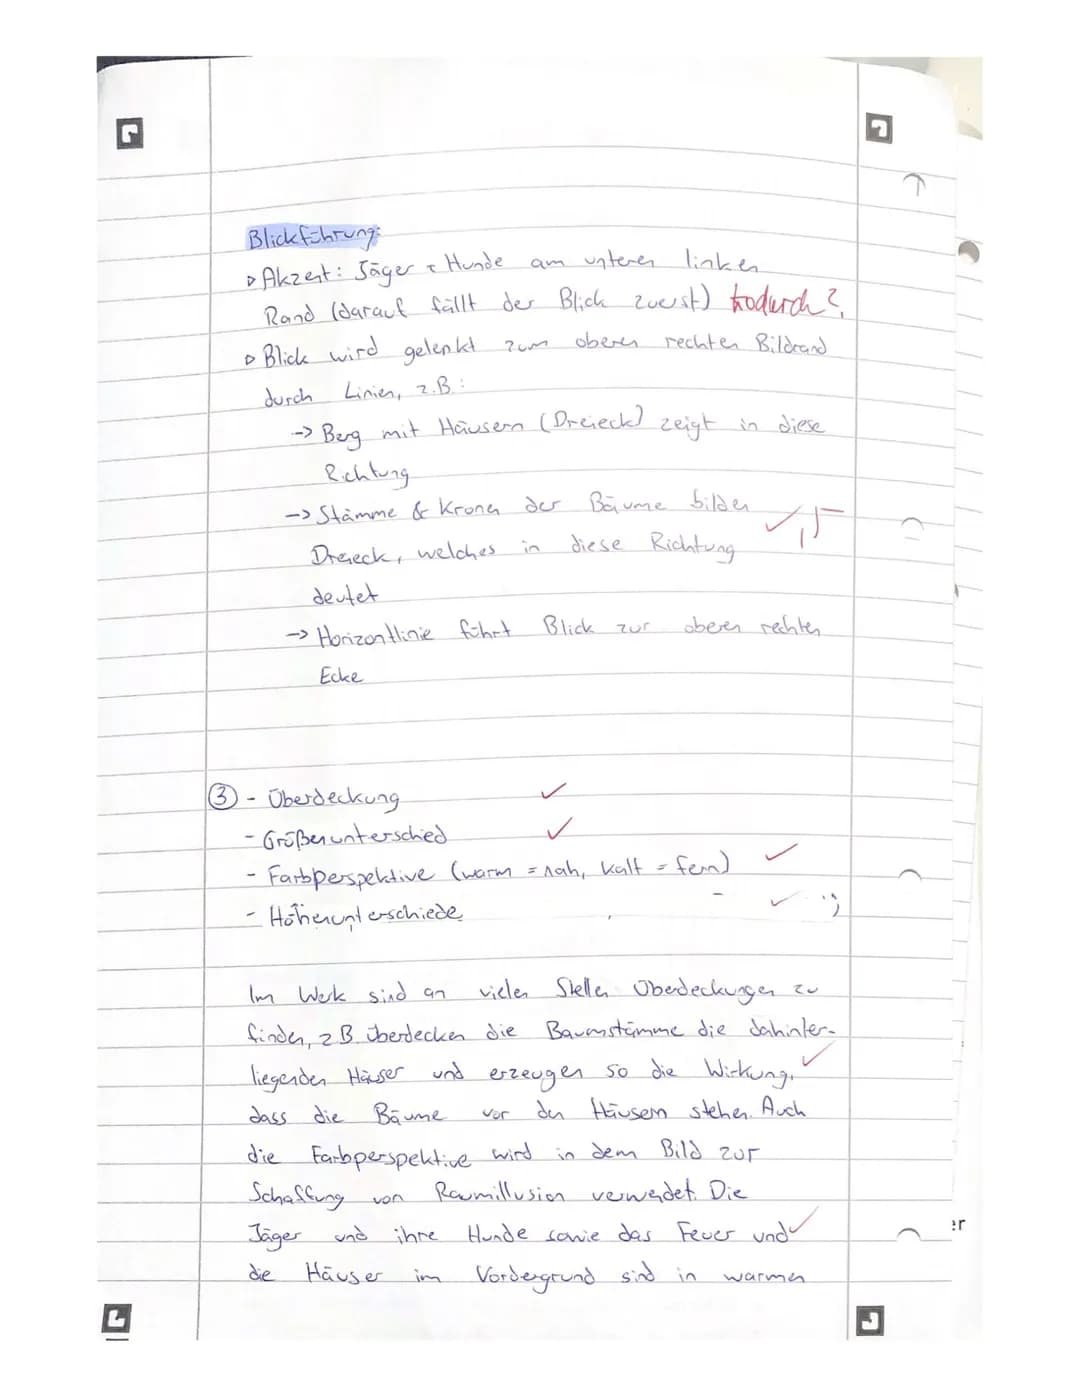 Blickführung:
▹ Akzent: Jäger & Hunde am unteren linken
Rand (darauf fällt der Blick zuerst) wodurch?
▹ Blick wird gelenkt zum oberen rechten Bildrand
durch Linien, z.B.:
-> Berg mit Häusern (Dreieck) zeigt in diese
Richtung
-> Stämme & Kronen der Bäume bilden
Dreieck, welches in diese Richtung
deutet
-> Horizontlinie führt Blick zur oberen rechten
Ecke
③ - Überdeckung ✓
- Größenunterschied ✓
- Farbperspektive (warm = nah, kalt = fern) ✓
- Höhenunterschiede ✓
Im Werk sind an vielen Stellen Überdeckungen zu
finden, z.B. überdecken die Baumstämme die dahinter-
liegenden Häuser und erzeugen so die Wirkung, ✓
dass die Bäume vor den Häusern stehen. Auch
die Farbperspektive wird in dem Bild zur
Schaffung von Raumillusion verwendet. Die
Jäger und ihre Hunde sowie das Feuer und ✓
die Häuser im Vordergrund sind in warmen
er